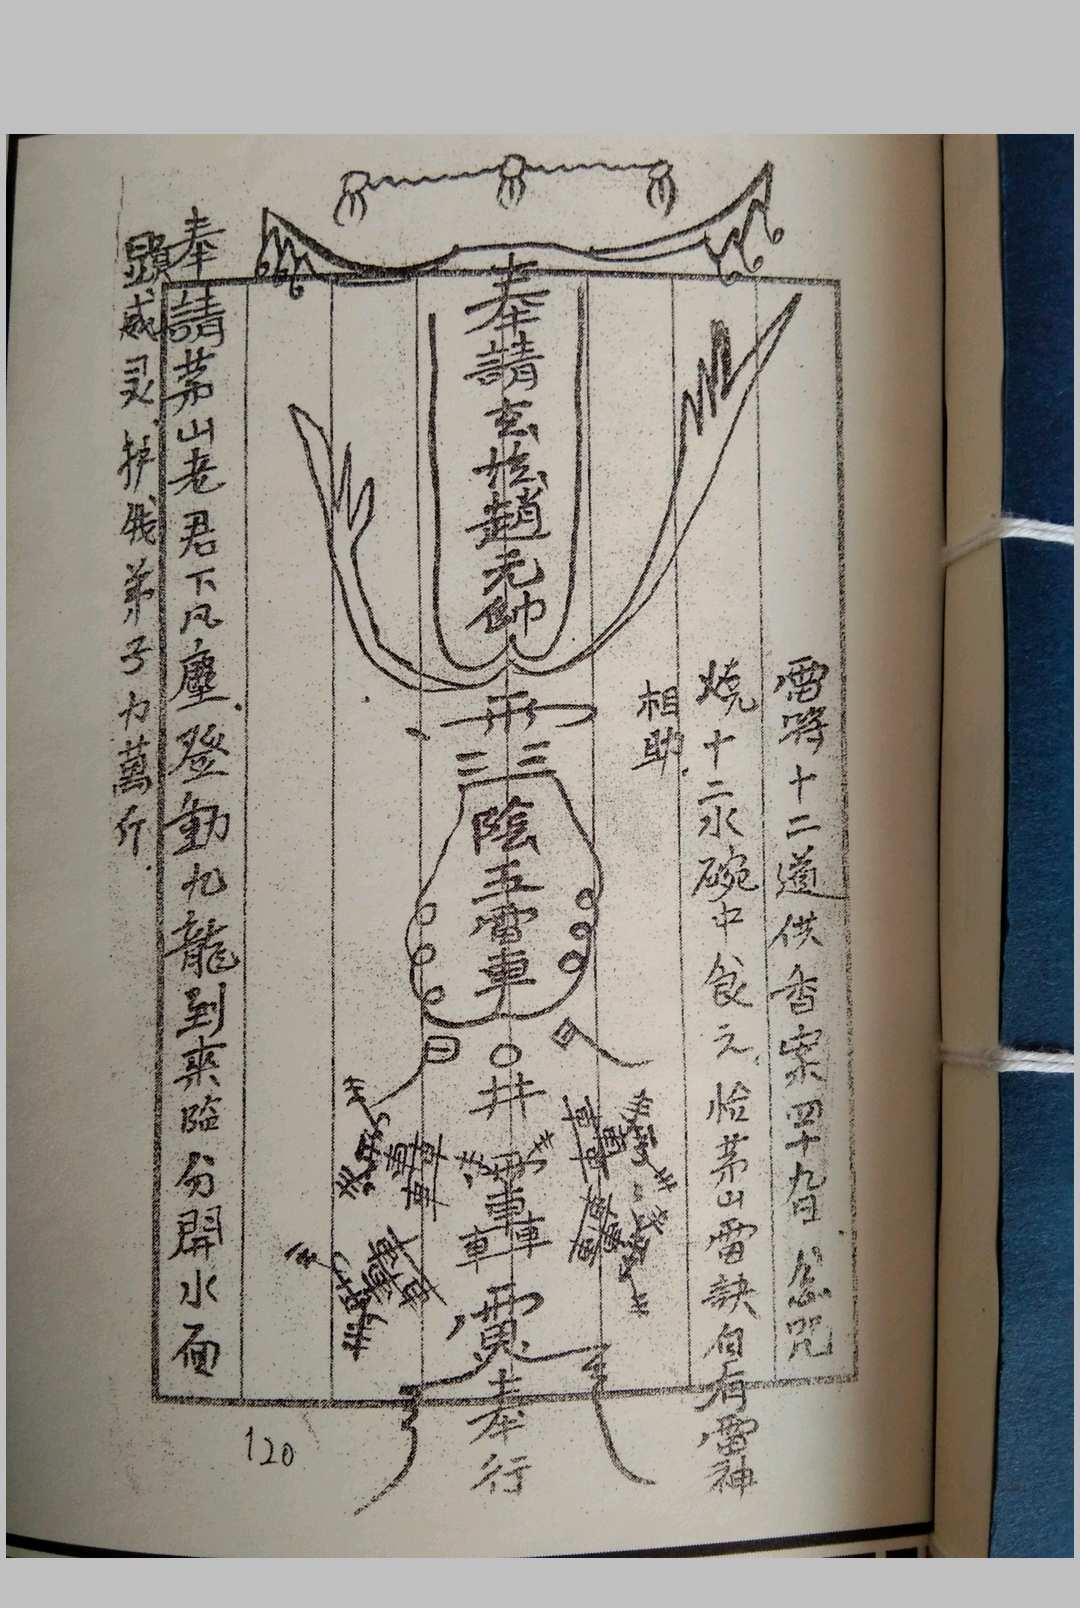 雷将十二道供香案四十九日念咒
燒十二水碗中食之 掐茅山雷訣自有雷神
相助
奉請玄坛趙元帥
陰五雷車
井
奉行
奉請茅山老君下凡塵登動九龍到來臨分開水面
顯威灵护我弟子力萬斤
120